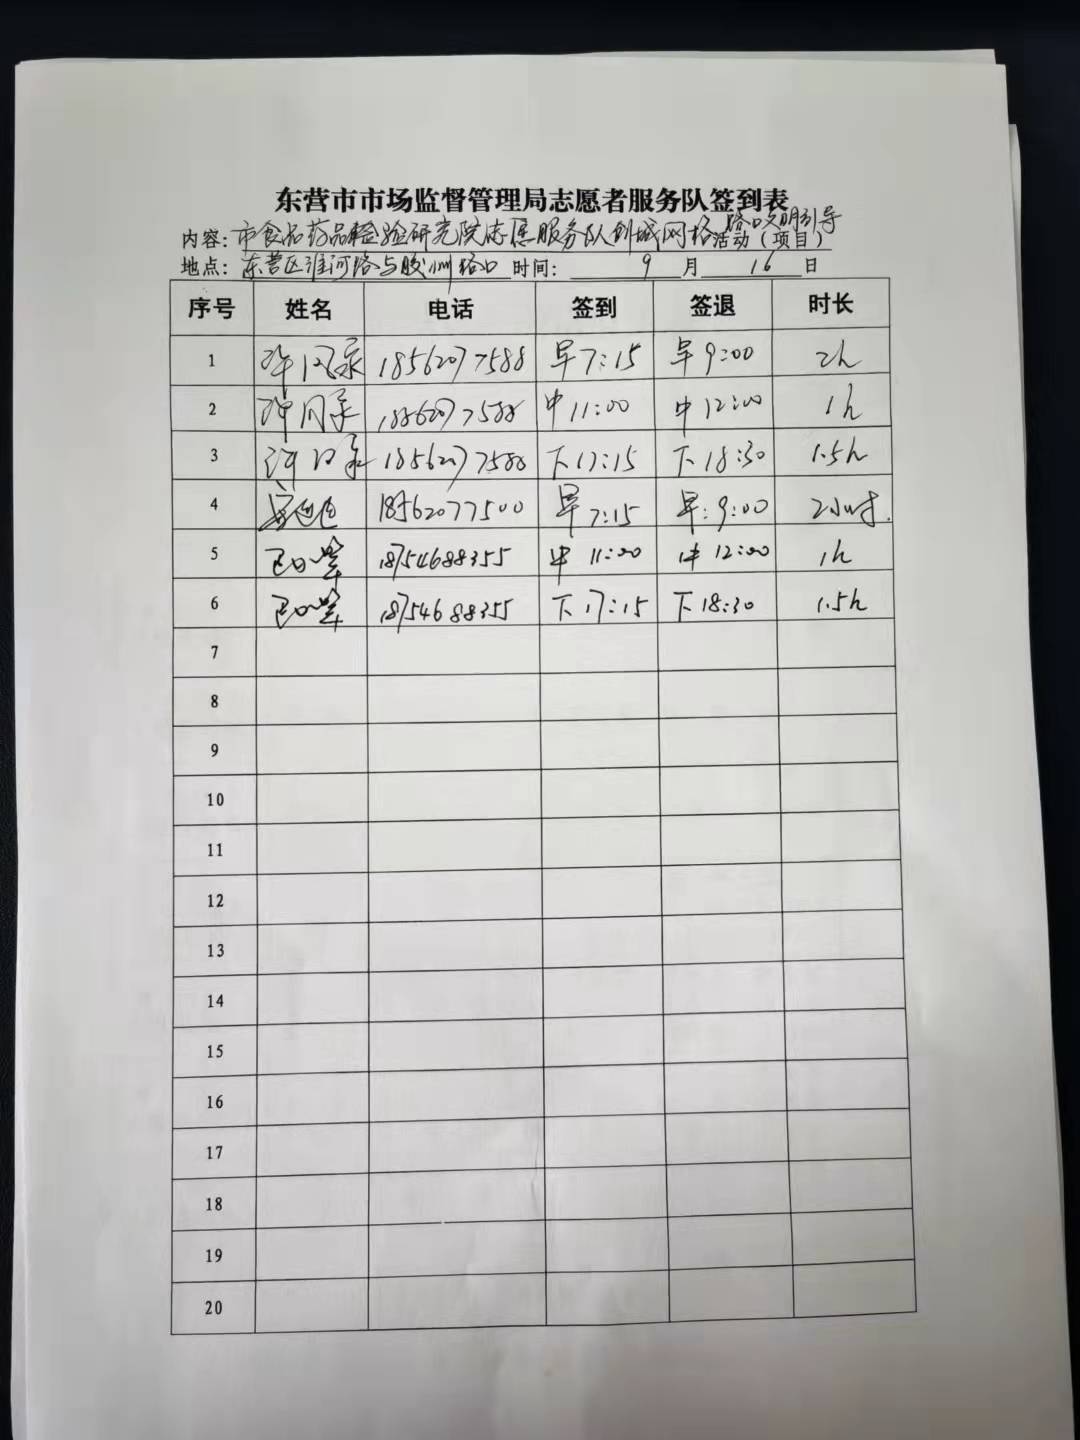 东营市市场监督管理局志愿者服务队签到表
路口文明引导
内容：市食品药品检验研究院志愿服务队创城网格活动（项目）
地点：东营区淮河路与胶州路口 时间： 9 月 16 日
序号 姓名 电话 签到 签退 时长
1 18562077588 早7:15 早9:00 2h
2 18562077588 中11:00 中12:00 1h
3 18562077588 下17:15 下18:30 1.5h
4 18562077500 早7:15 早:9:00 2小时.
5 18754688355 中 11:00 中 12:00 1h
6 18754688355 下17:15 下18:30 1.5h
7
8
9
10
11
12
13
14
15
16
17
18
19
20